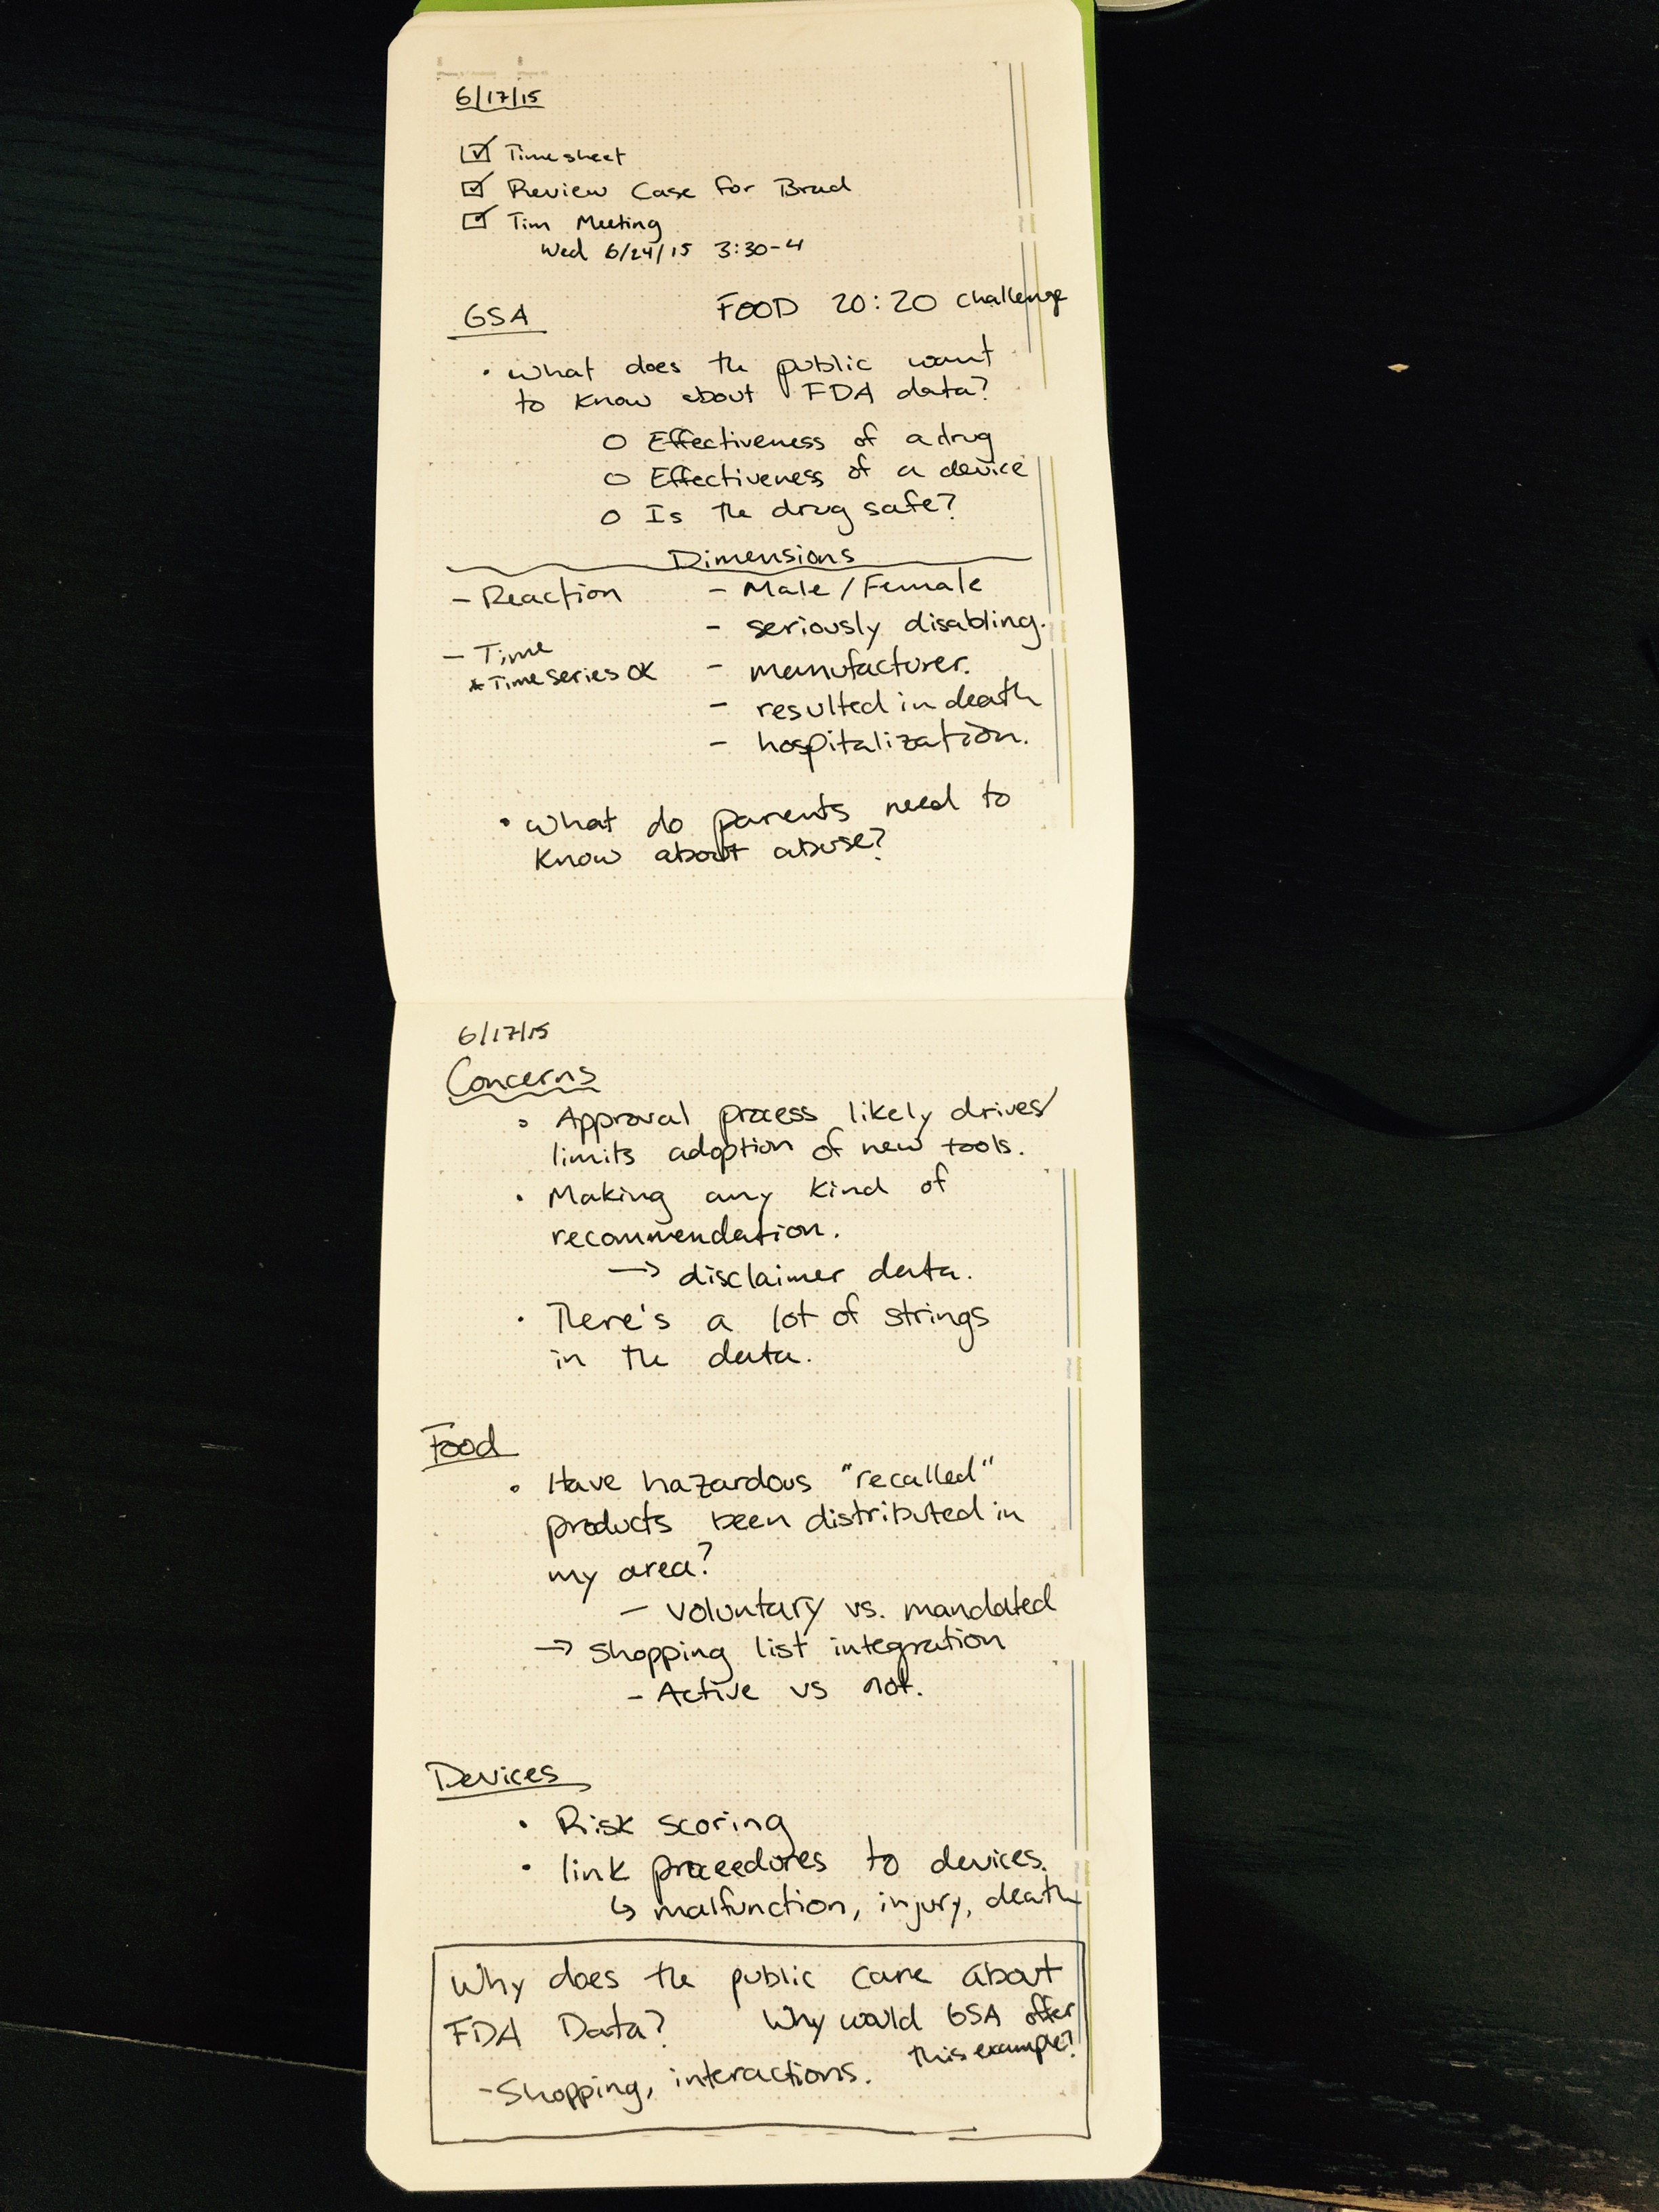 6/17/15
Timesheet
Review Case for Brad
Tim Meeting
Wed 6/24/15 3:30-4
GSA
FOOD 20:20 challenge
• what does the public want
to know about FDA data?
○ Effectiveness of a drug
○ Effectiveness of a device
○ Is the drug safe?
Dimensions
- Reaction
- Time
* Time series OK
- Male / Female
- seriously disabling.
- manufacturer.
- resulted in death
- hospitalization.
• what do parents need to
know about abuse?
6/17/15
Concerns
• Approval process likely drives/
limits adoption of new tools.
• Making any kind of
recommendation.
→ disclaimer data.
• There's a lot of strings
in the data.
Food
• Have hazardous "recalled"
products been distributed in
my area?
- voluntary vs. mandated
→ shopping list integration
- Active vs not.
Devices
• Risk scoring
• link proceedures to devices.
↳ malfunction, injury, death
Why does the public care about
FDA Data?
Why would GSA offer
this example?
- Shopping, interactions.